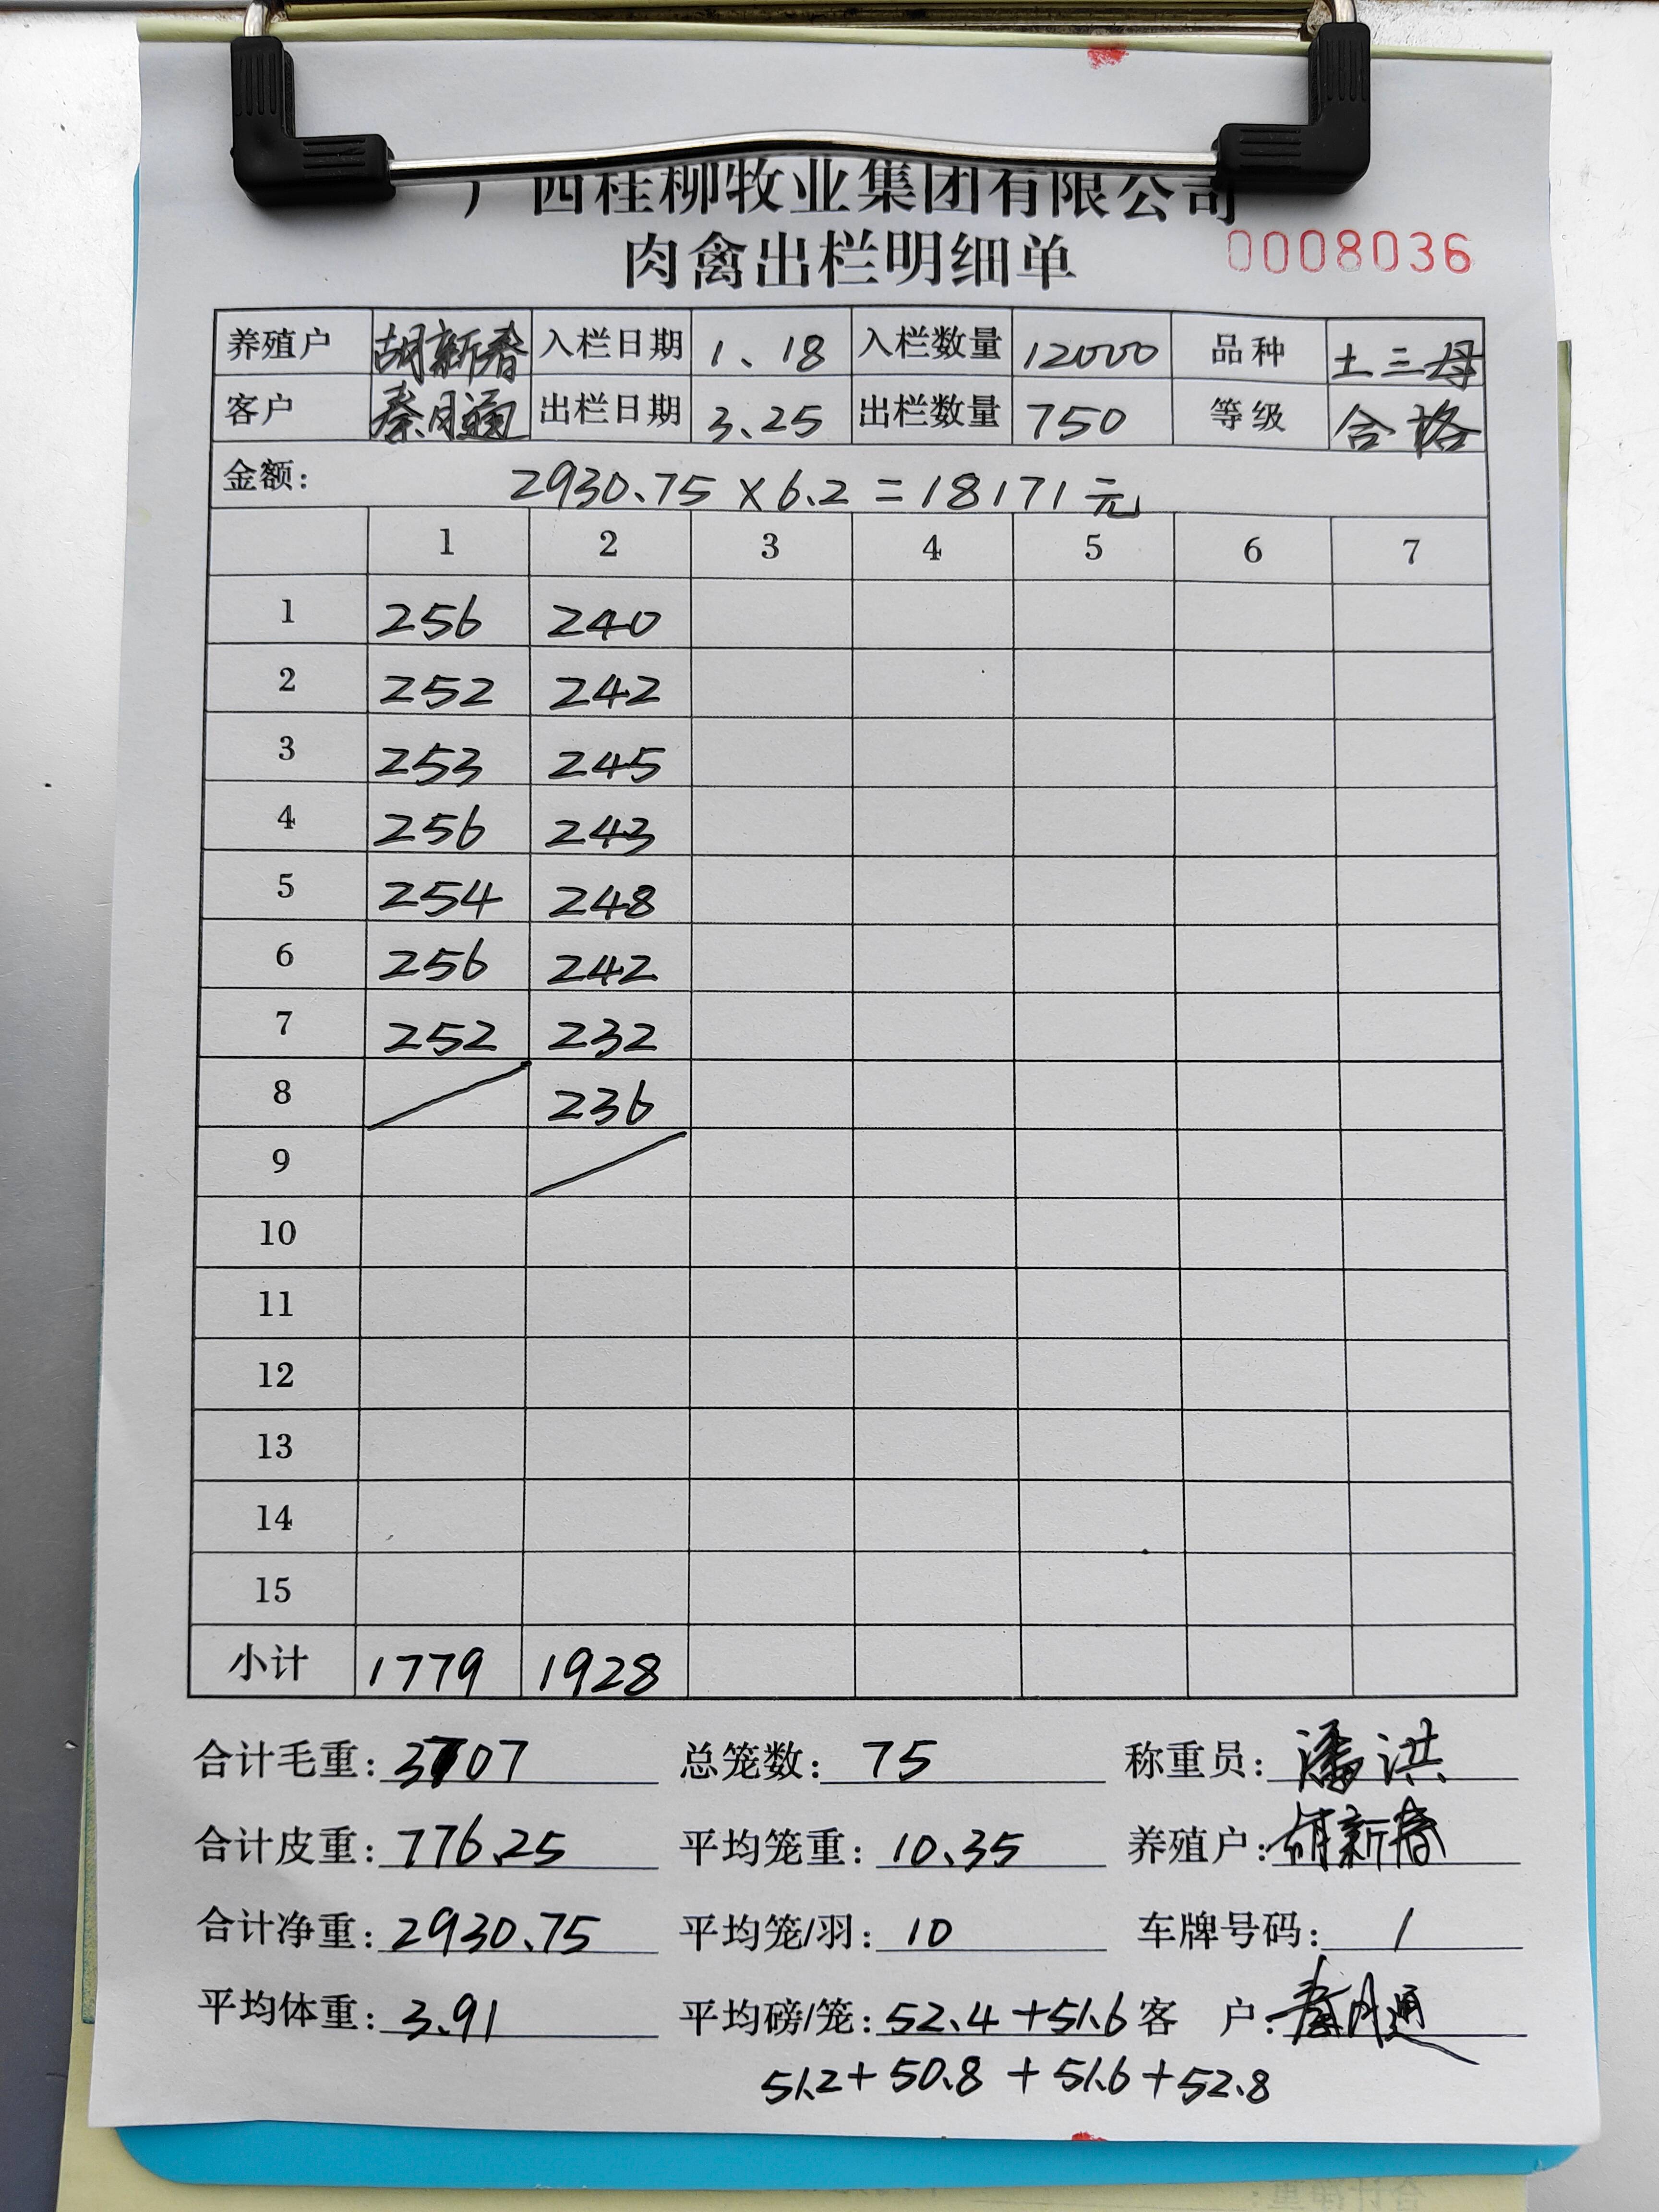 广西桂柳牧业集团有限公司
肉禽出栏明细单 0008036
养殖户 胡新春 入栏日期 1、18 入栏数量 12000 品种 土三母
客户 秦月通 出栏日期 3.25 出栏数量 750 等级 合格
金额: 2930.75×6.2=18171元
1 2 3 4 5 6 7
1 256 240
2 252 242
3 253 245
4 256 243
5 254 248
6 256 242
7 252 232
8 / 236
9 /
10
11
12
13
14
15
小计 1779 1928
合计毛重: 3707 总笼数: 75 称重员: 潘洪
合计皮重: 776.25 平均笼重: 10.35 养殖户: 胡新春
合计净重: 2930.75 平均笼/羽: 10 车牌号码: /
平均体重: 3.91 平均磅/笼: 52.4+51.6 客 户: 秦月通
51.2+50.8+51.6+52.8